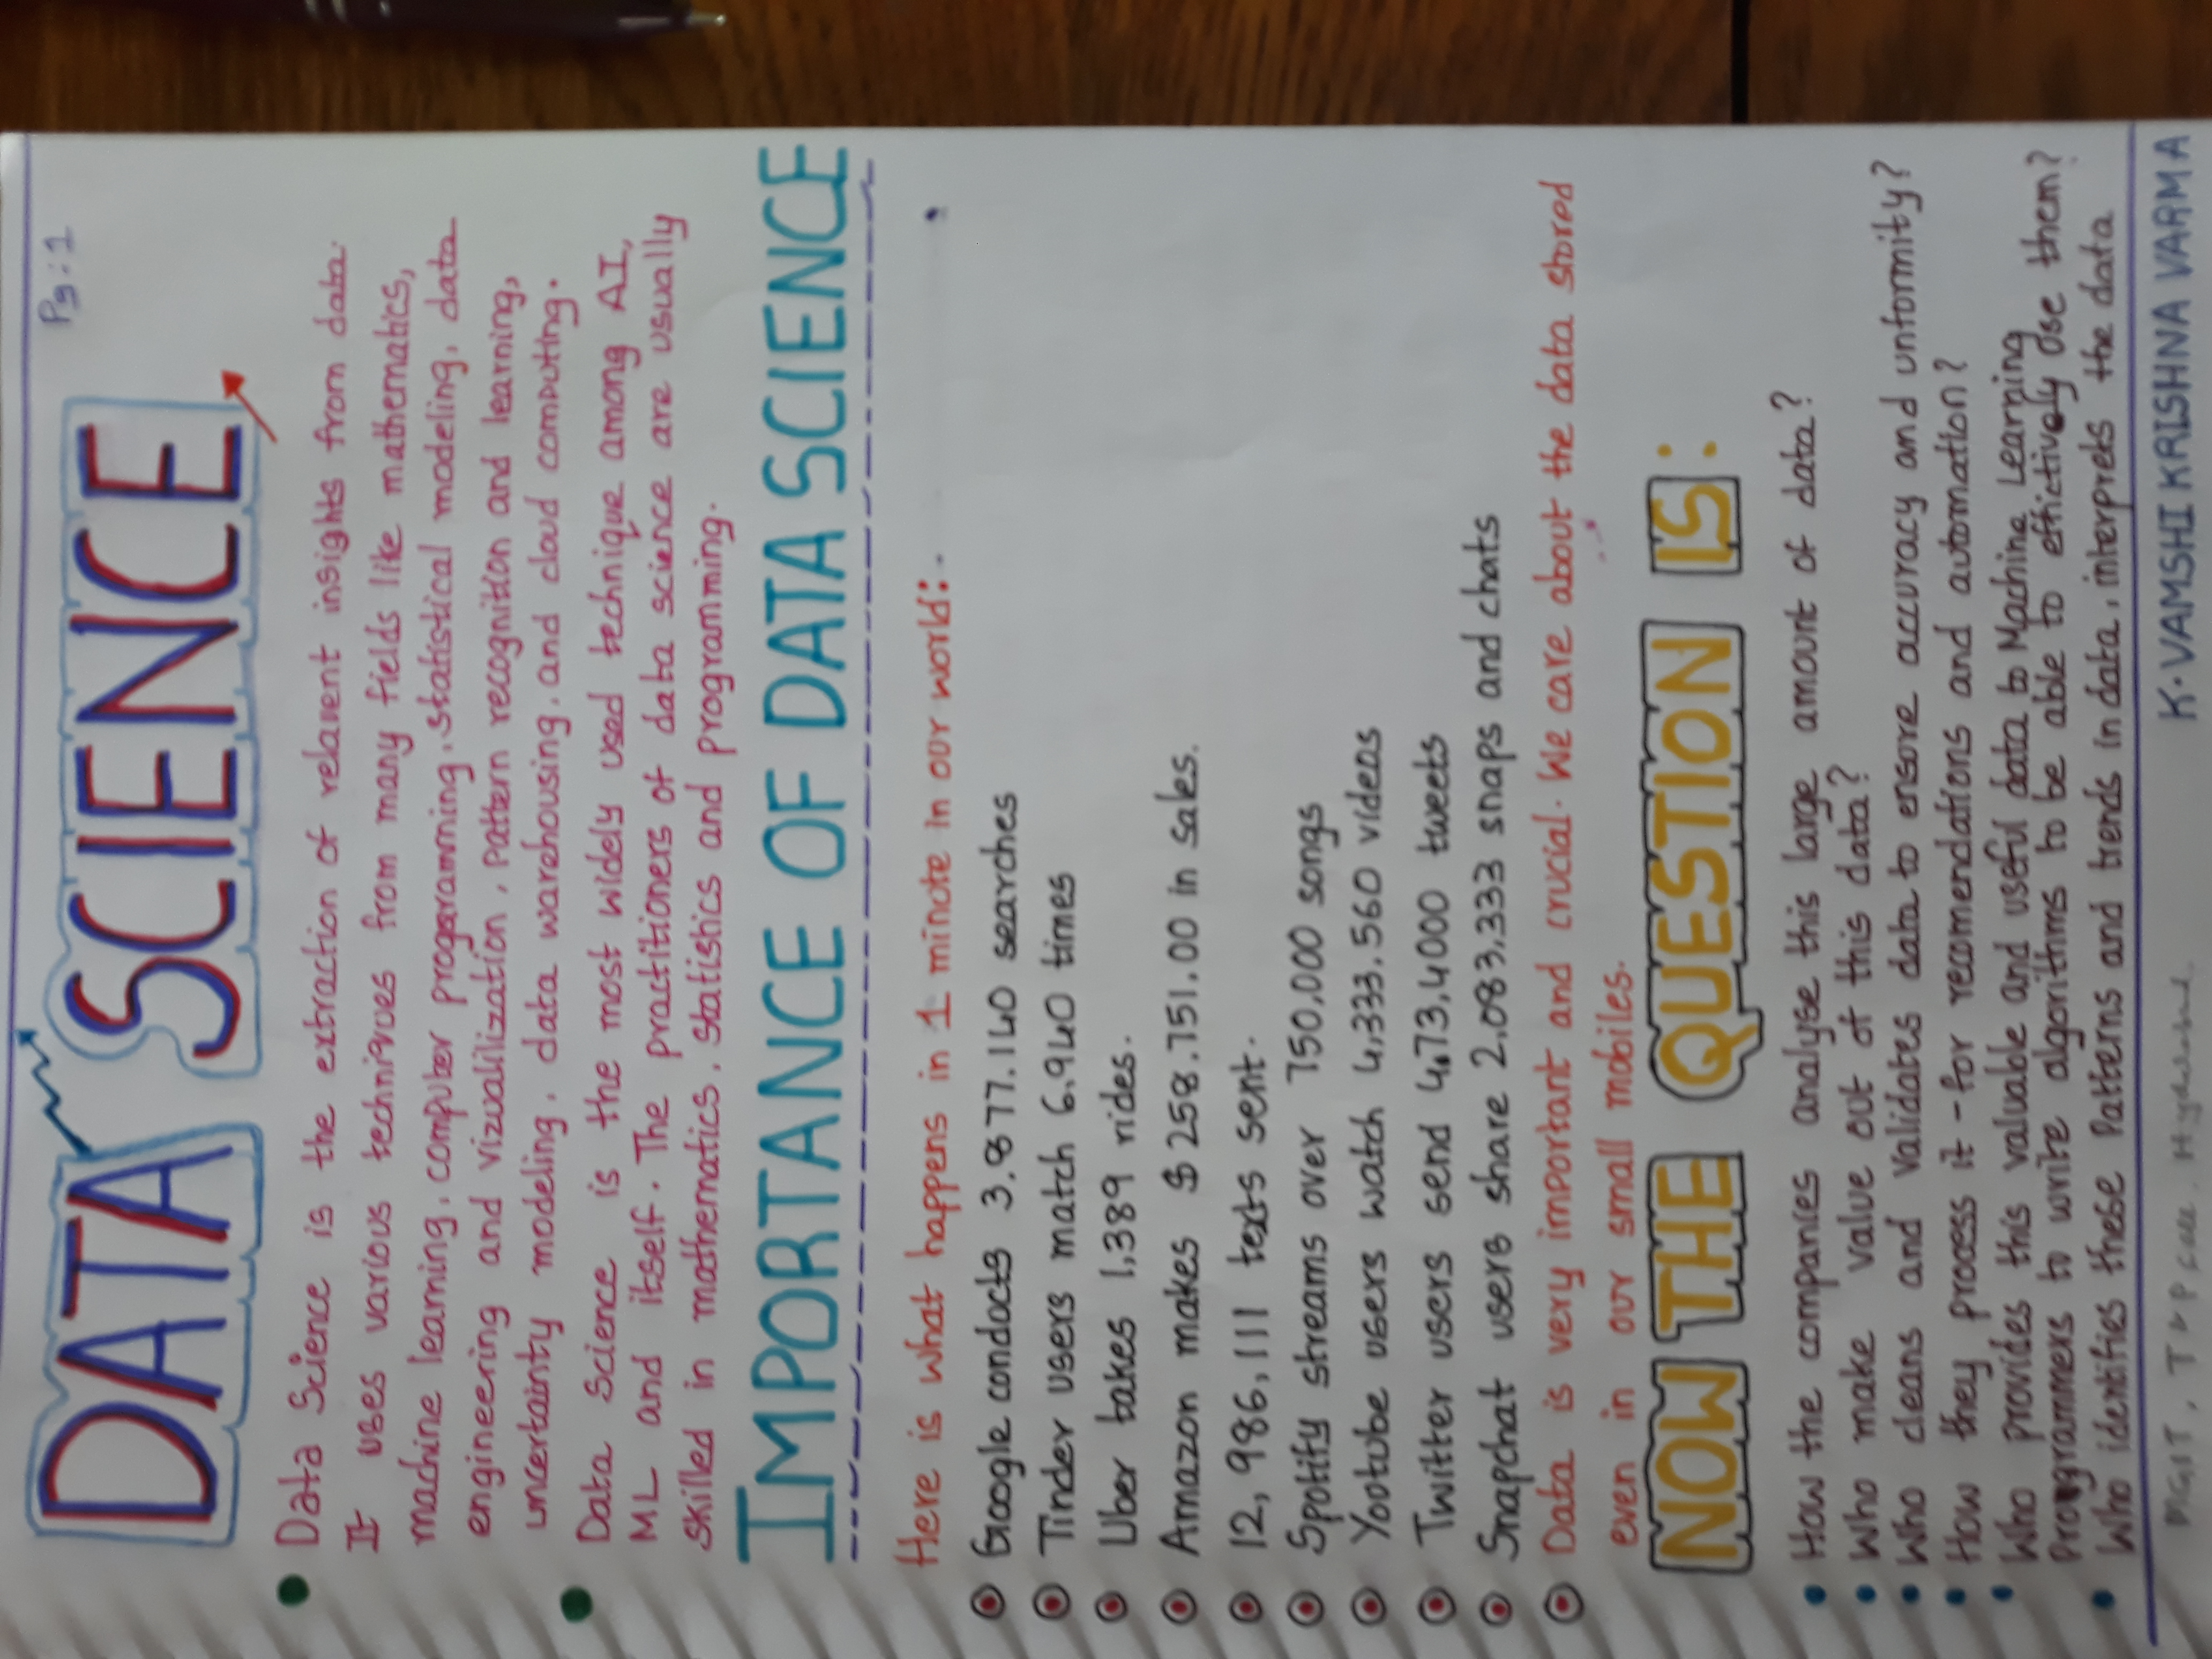 Pg:1
DATA SCIENCE
Data Science is the extraction of relavent insights from data.
It uses various techniques from many fields like mathematics,
machine learning, computer progaramming, statistical modeling, data
engineering and vizualilization, pattern recognition and learning,
uncertainty modeling, data warehousing, and cloud computing.
Data Science is the most widely used technique among AI,
ML and itself. The practitioners of data science are usually
skilled in mathematics, statistics and programming.
IMPORTANCE OF DATA SCIENCE
Here is what happens in 1 minute in our world:-
Google conducts 3,877,140 searches
Tinder users match 6,940 times
Uber takes 1,389 rides.
Amazon makes $ 258,751.00 in sales.
12, 986,111 texts sent.
Spotify streams over 750,000 songs
Yootube users watch 4,333,560 videos
Twitter users send 4,73,4000 tweets
Snapchat users share 2,083,333 snaps and chats
Data is very important and crucial. We care about the data stored
even in our small mobiles.
NOW THE QUESTION IS:
How the companies analyse this large amount of data?
Who make value out of this data?
Who cleans and validates data to ensure accuracy and unformity?
How they process it - for recomendations and automation?
Who provides this valuable and useful data to Machine Learning
Programmers to write algorithms to be able to effictively use them?
Who identifies these Patterns and trends in data, interprets the data
MGIT, T & P Cell, Hyderabad.
K. VAMSHI KRISHNA VARMA